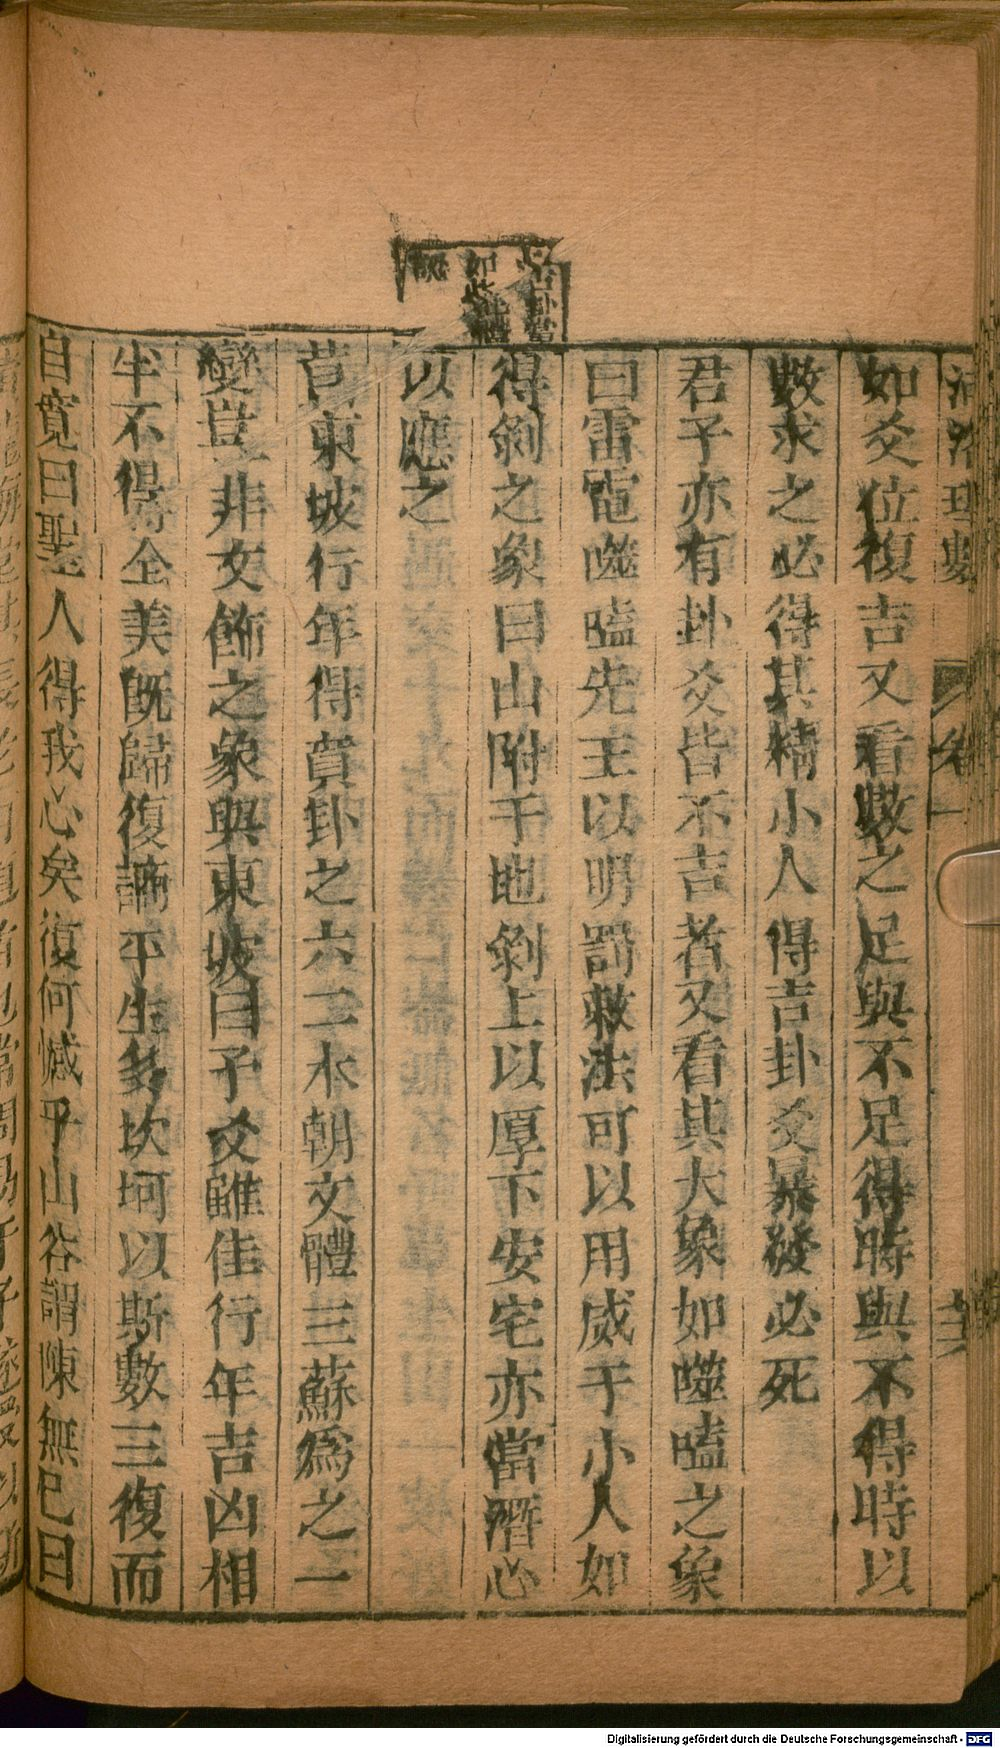 河洛理數
卷一
十二
如爻位復吉又看數之足與不足得時與不得時以
數求之必得其精小人得吉卦爻暴發必死
君子亦有卦爻皆不吉者又看其大象如噬嗑之象
曰雷電噬嗑先王以明罰敕法可以用威于小人如
得剝之象曰山附于地剝上以厚下安宅亦當潛心
以應之
占卦當
如此
昔東坡行年得賁卦之六二本朝文體三蘇為之一
變豈非文飾之象與東坡曰予爻雖佳行年吉凶相
半不得全美旣歸復謫平生多坎坷以斯數三復而
自寬曰聖人得我心矣復何憾乎山谷謂陳無已曰
Digitalisierung gefördert durch die Deutsche Forschungsgemeinschaft - DFG